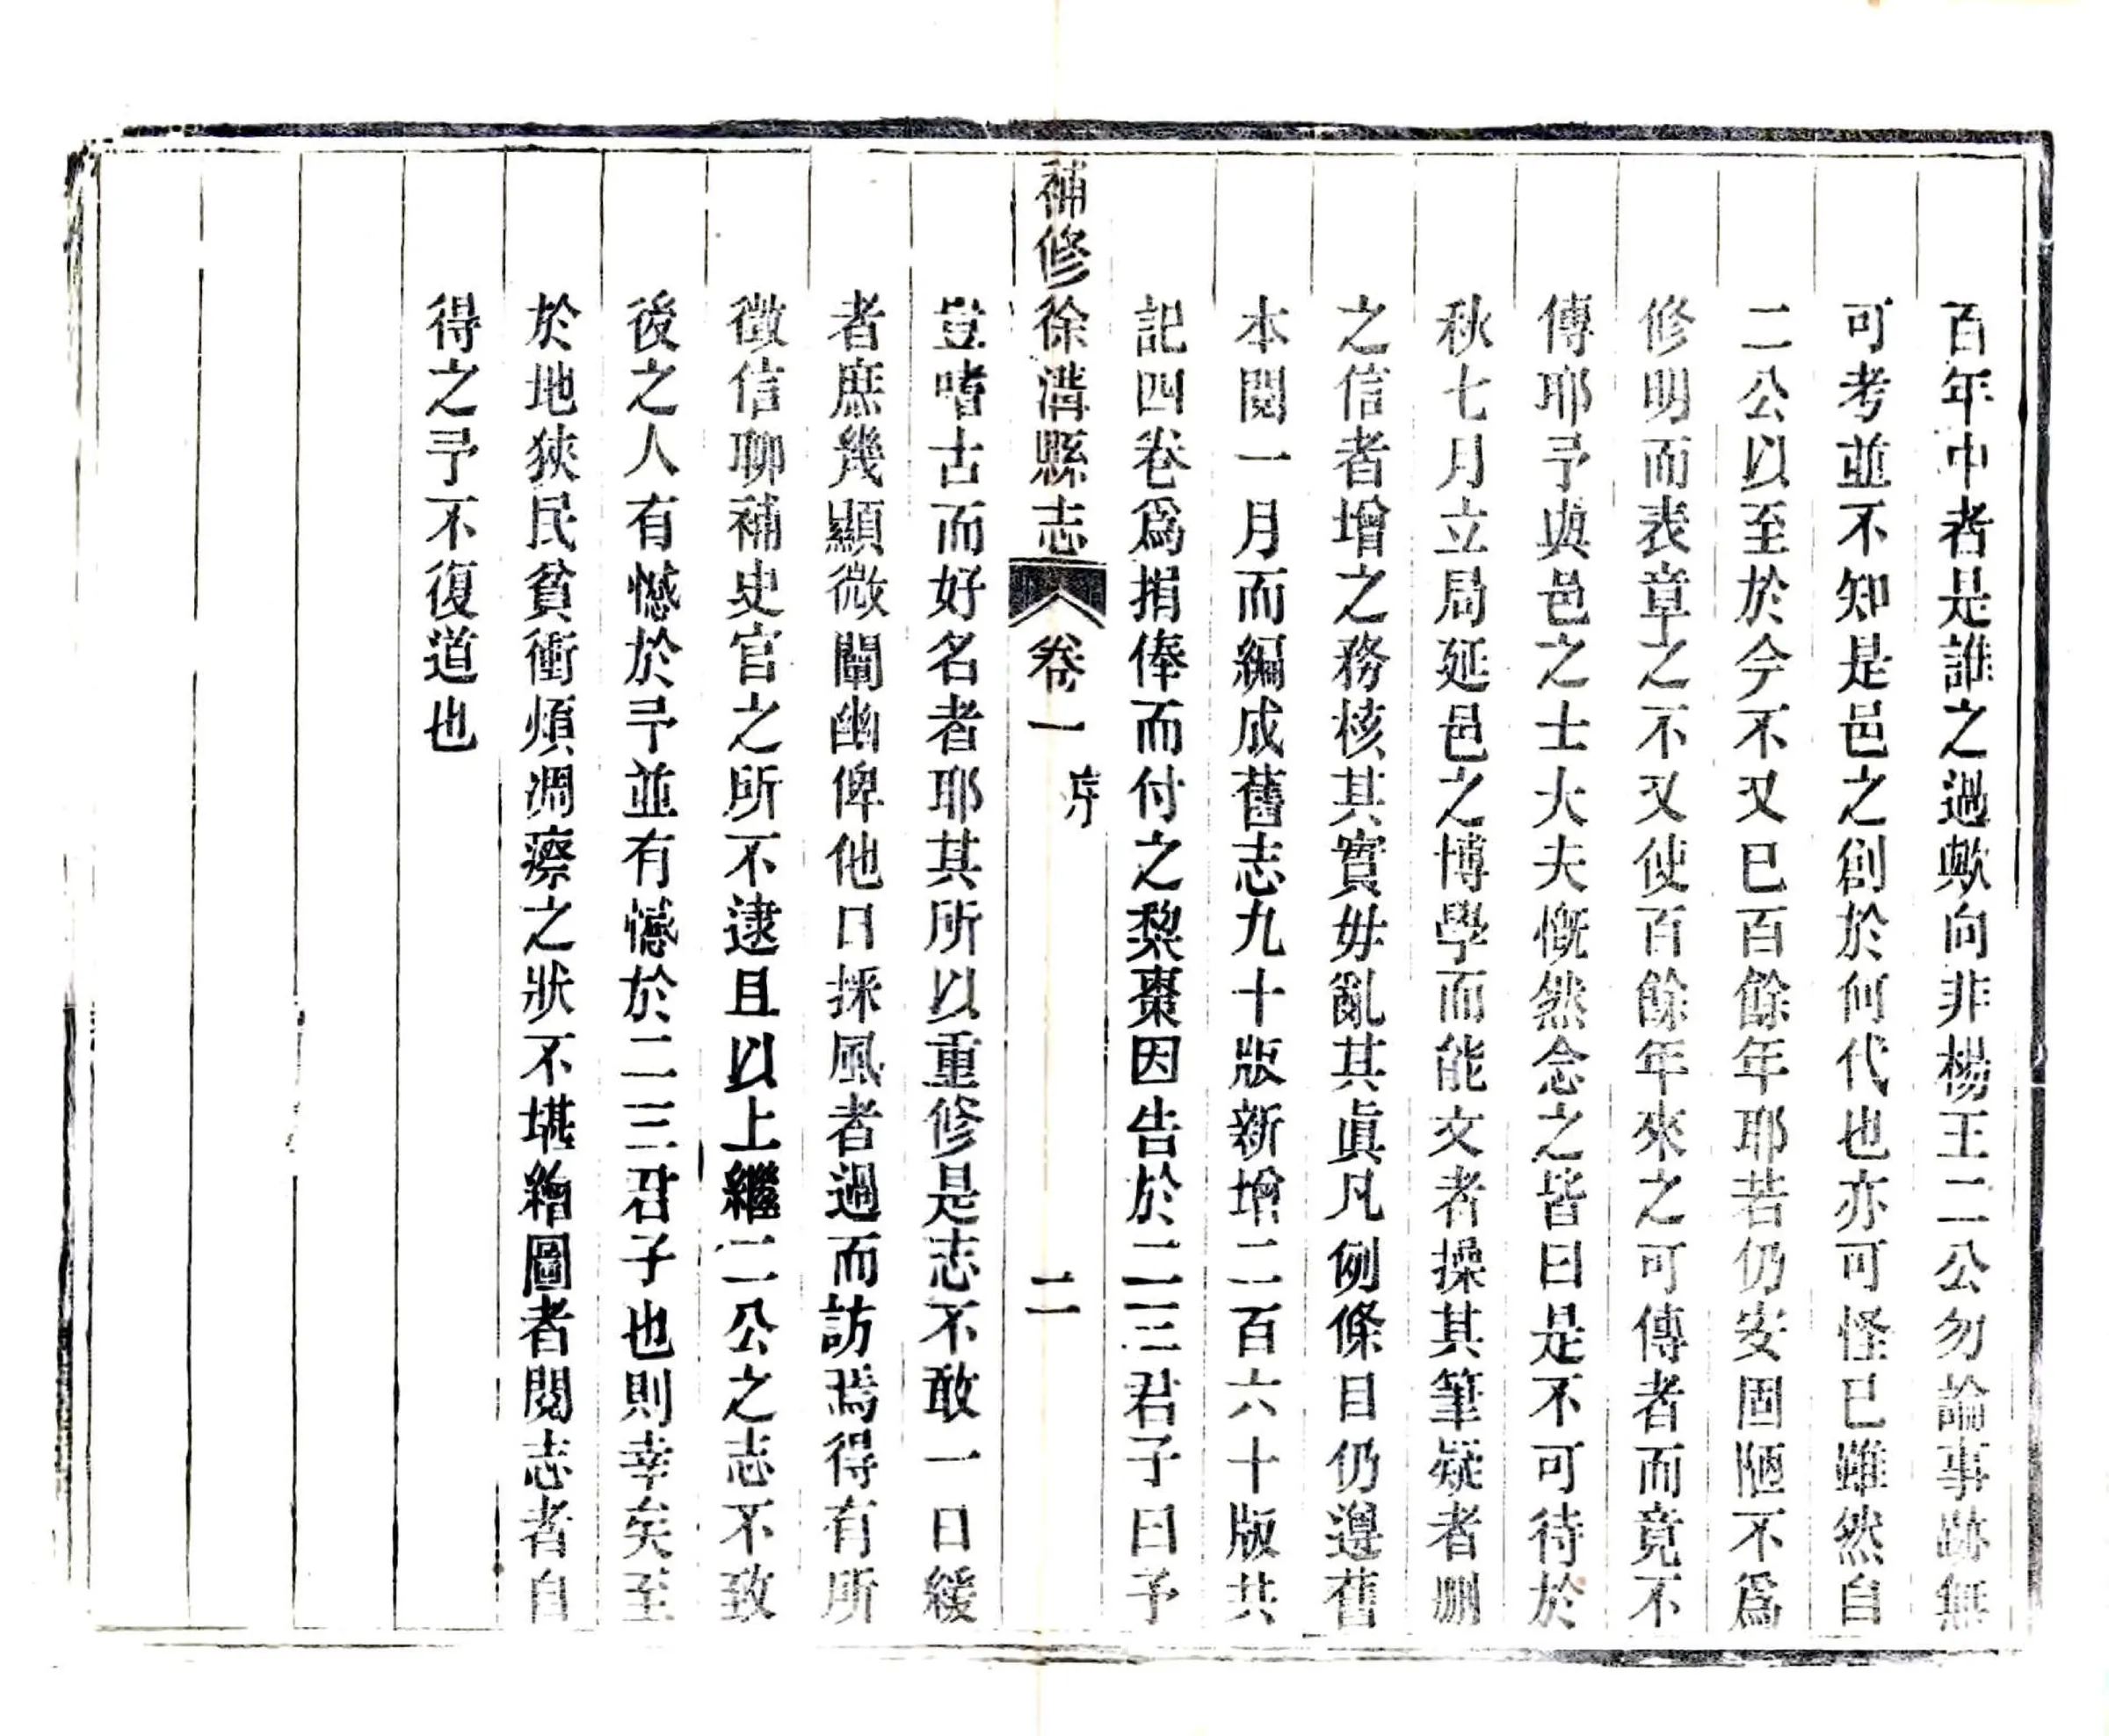 百年中者是誰之過歟向非楊王二公勿論事跡無
可考並不知是邑之創於何代也亦可怪已雖然自
二公以至於今不又已百餘年耶若仍安固陋不爲
修明而表章之不又使百餘年來之可傳者而竟不
傳耶予與邑之士大夫慨然念之皆曰是不可待於
秋七月立局延邑之博學而能文者操其筆疑者刪
之信者增之務核其實毋亂其眞凡例條目仍遵舊
本閱一月而編成舊志九十版新增二百六十版共
記四卷爲捐俸而付之棃棗因告於二三君子曰予
補修徐溝縣志 卷一 序 二
豈嗜古而好名者耶其所以重修是志不敢一日緩
者庶幾顯微闡幽俾他日採風者過而訪焉得有所
徵信聊補史官之所不逮且以上繼二公之志不致
後之人有憾於予並有憾於二三君子也則幸矣至
於地狹民貧衝煩凋瘵之狀不堪繪圖者閱志者自
得之予不復道也